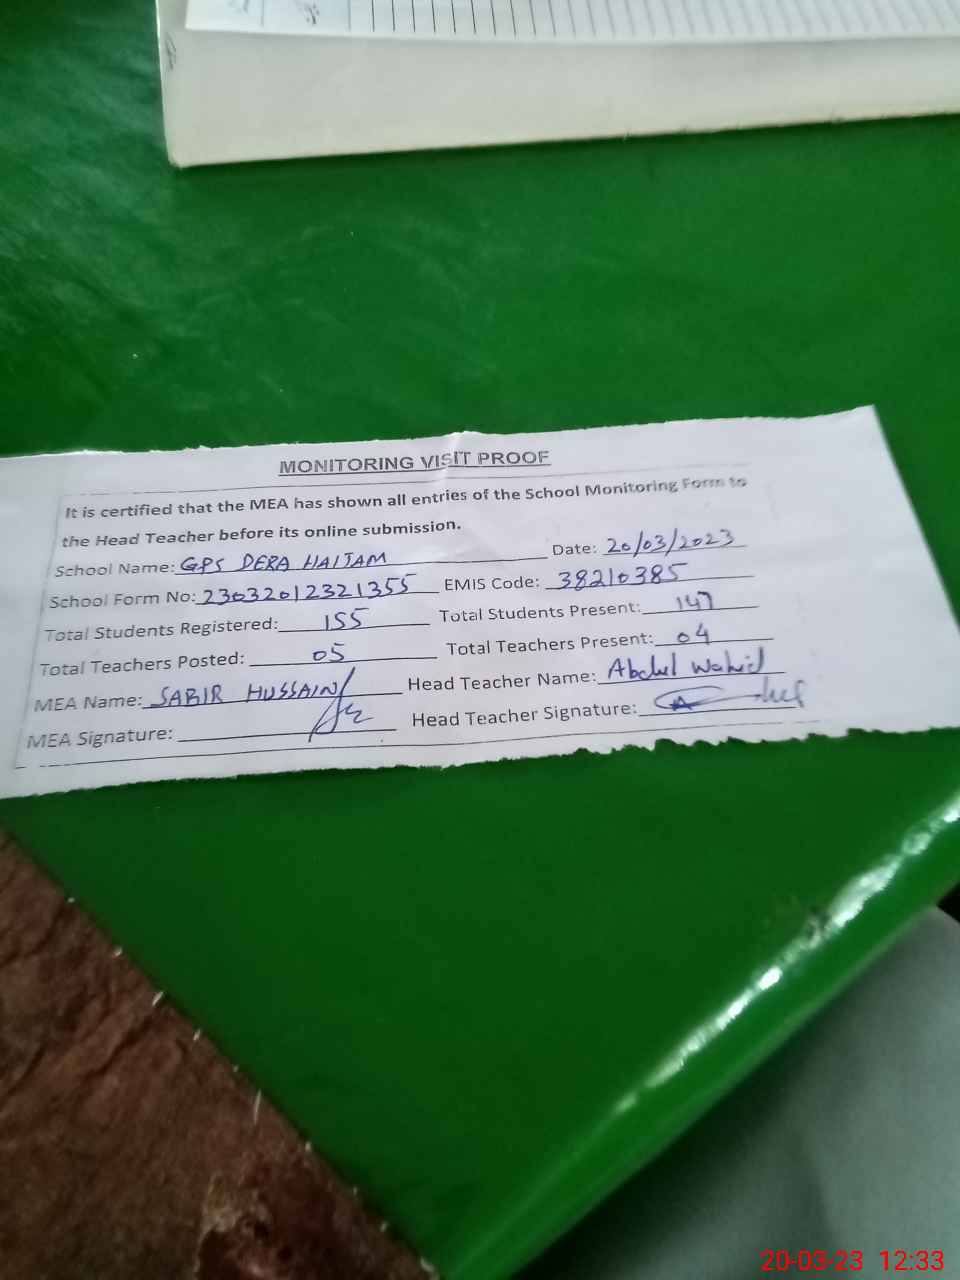 MONITORING VISIT PROOF
It is certified that the MEA has shown all entries of the School Monitoring Form to
the Head Teacher before its online submission.
School Name: GPS DERA HAIJAM Date: 20/03/2023
School Form No: 23032012321355 EMIS Code: 38210385
Total Students Registered: 155 Total Students Present: 147
Total Teachers Posted: 05 Total Teachers Present: 04
MEA Name: SABIR HUSSAIN Head Teacher Name: Abdul Wahid
MEA Signature: Head Teacher Signature:
20-03-23 12:33